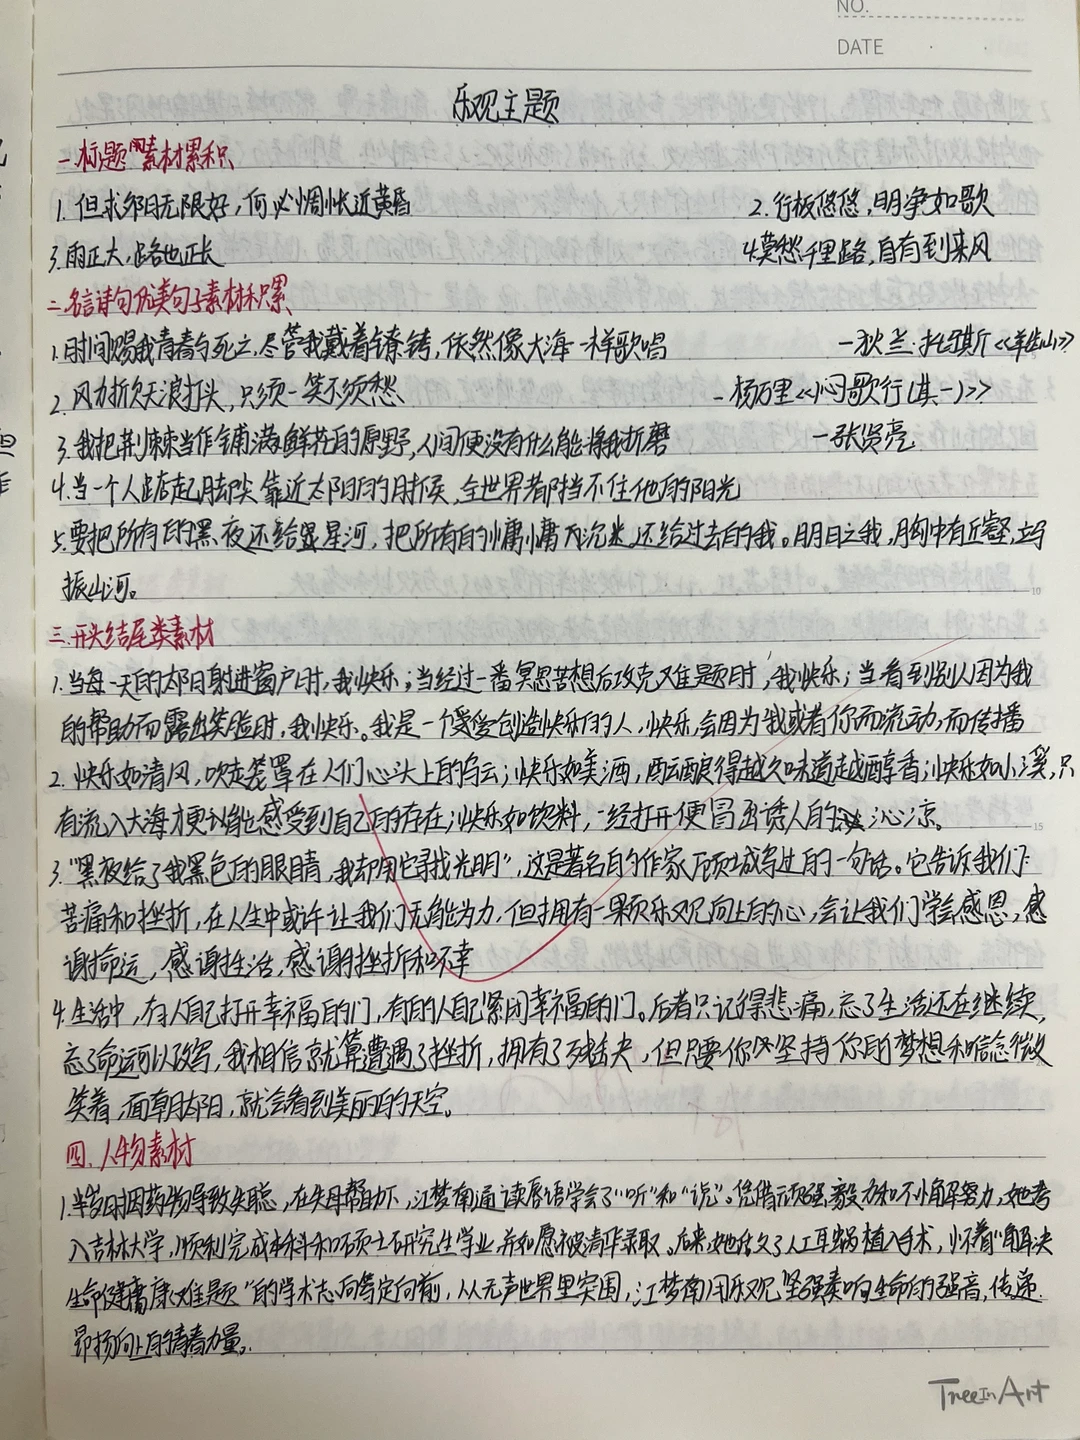 NO.
DATE
乐观主题
一.标题素材累积
1. 但求夕阳无限好,何必惆怅近黄昏 2. 行板悠悠,明净如歌
3. 雨正大,路也正长 4.莫愁千里路,自有到来风
二.名言诗句优美句子素材积累
1.时间赐我青春与死亡,尽管我戴着镣铐,依然像大海一样歌唱 —狄兰·托马斯《羊齿山》
2. 风力掀天浪打头,只须一笑不须愁 - 杨万里《闷歌行(其一)》
3. 我把荆棘当作铺满鲜花的原野,人间便没有什么能将我折磨 —张贤亮
4.当一个人踮起脚尖靠近太阳的时候,全世界都挡不住他的阳光
5.要把所有的黑夜还给星河,把所有的慵慵沉迷还给过去的我。明日之我,胸中有丘壑,立马
振山河。
三.开头结尾类素材
1.当每一天的太阳射进窗户时,我快乐;当经过一番冥思苦想后攻克难题时,我快乐;当看到别人因为我
的帮助而露出笑脸时,我快乐。我是一个爱创造快乐的人,快乐,会因为我或者你而流动,而传播
2. 快乐如清风,吹走笼罩在人们心头上的乌云;快乐如美酒,酝酿得越久味道越醇香;快乐如小溪,只
有流入大海才更能感受到自己的存在;快乐如饮料,一经打开便冒出诱人的沁凉。
3.“黑夜给了我黑色的眼睛,我却用它寻找光明”,这是著名的作家顾城写过的一句话。它告诉我们:
苦痛和挫折,在人生中或许让我们无能为力,但拥有一颗乐观向上的心,会让我们学会感恩,感
谢命运,感谢生活,感谢挫折和不幸
4. 生活中,有人自己打开幸福的门,有的人自己紧闭幸福的门。后者只记得悲痛,忘了生活还在继续,
忘了命运可以改写,我相信就算遭遇了挫折,拥有了残缺,但只要你坚持你的梦想和信念微
笑着,面朝太阳,就会看到美丽的天空。
四.人物素材
1.半岁时因药物导致失聪,在父母帮助下,江梦南通读唇语学会了“听”和“说”。凭借顽强毅力和不懈努力,她考
入吉林大学,顺利完成本科和硕士研究生学业并如愿被清华录取。后来她做了人工耳蜗植入手术,怀着“解决
生命健康难题”的学术志向笃定向前,从无声世界里突围,江梦南用乐观坚强奏响生命的强音,传递
昂扬向上的青春力量。
10
15
TreeInArt